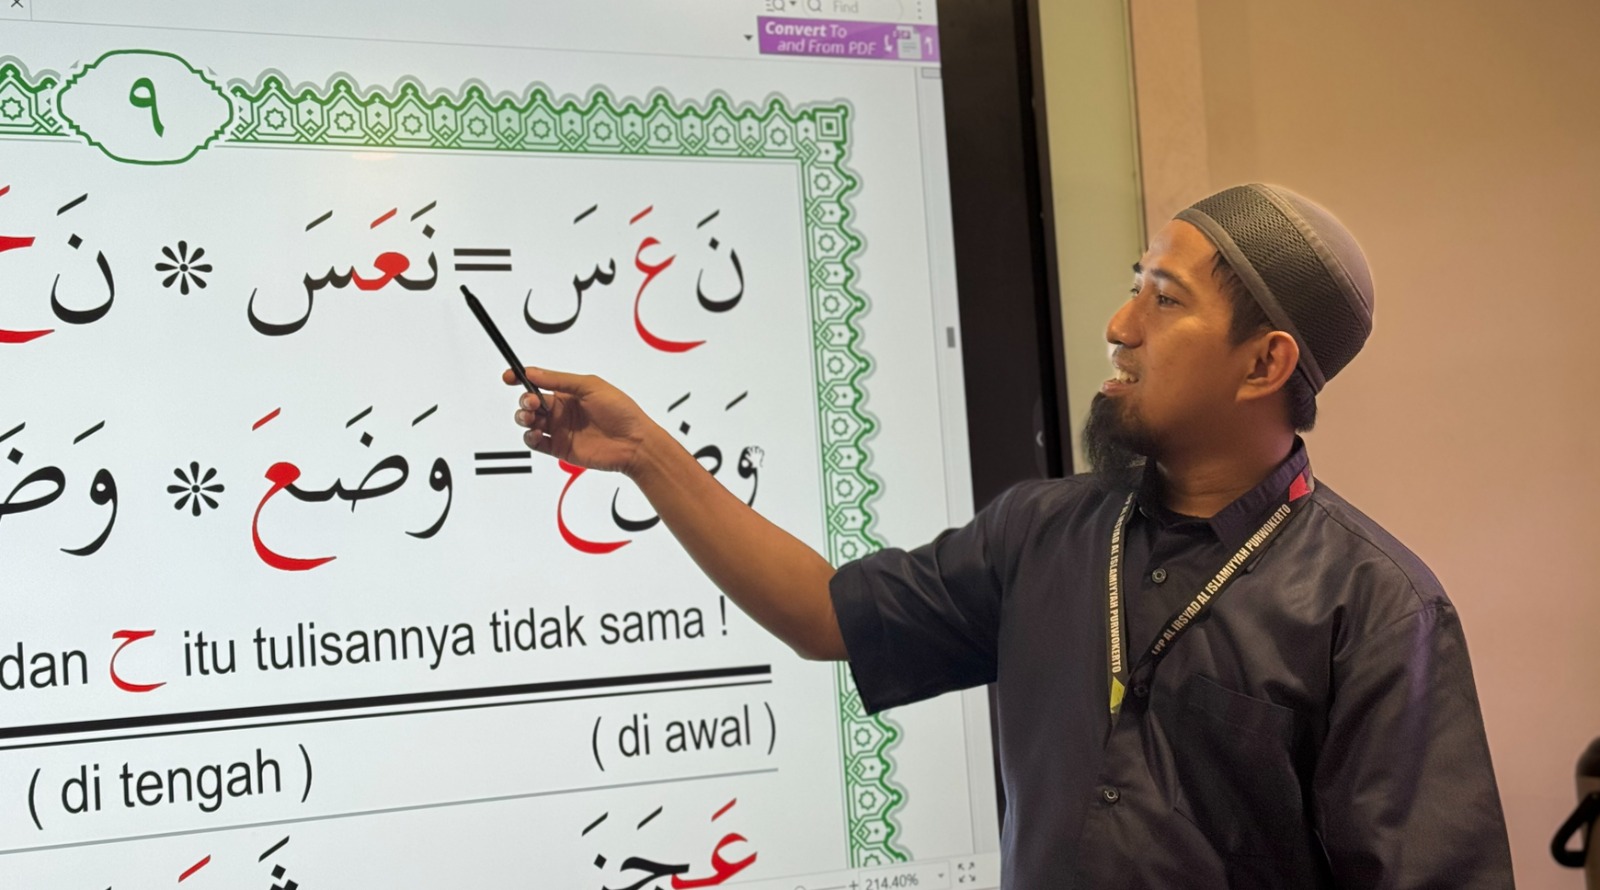 Find
Convert To
and From PDF
٩
نَ عَ سَ = نَعَسَ * نَ
وَ ضَ عَ = وَضَعَ * وَ ضَ
dan ح itu tulisannya tidak sama !
( di awal )
( di tengah )
عَجَنَ
214.40%
LPP AL IRSYAD AL ISLAMIYYAH PURWOKERTO
AL IRSYAD AL ISLAMIYYAH PURWOKERTO